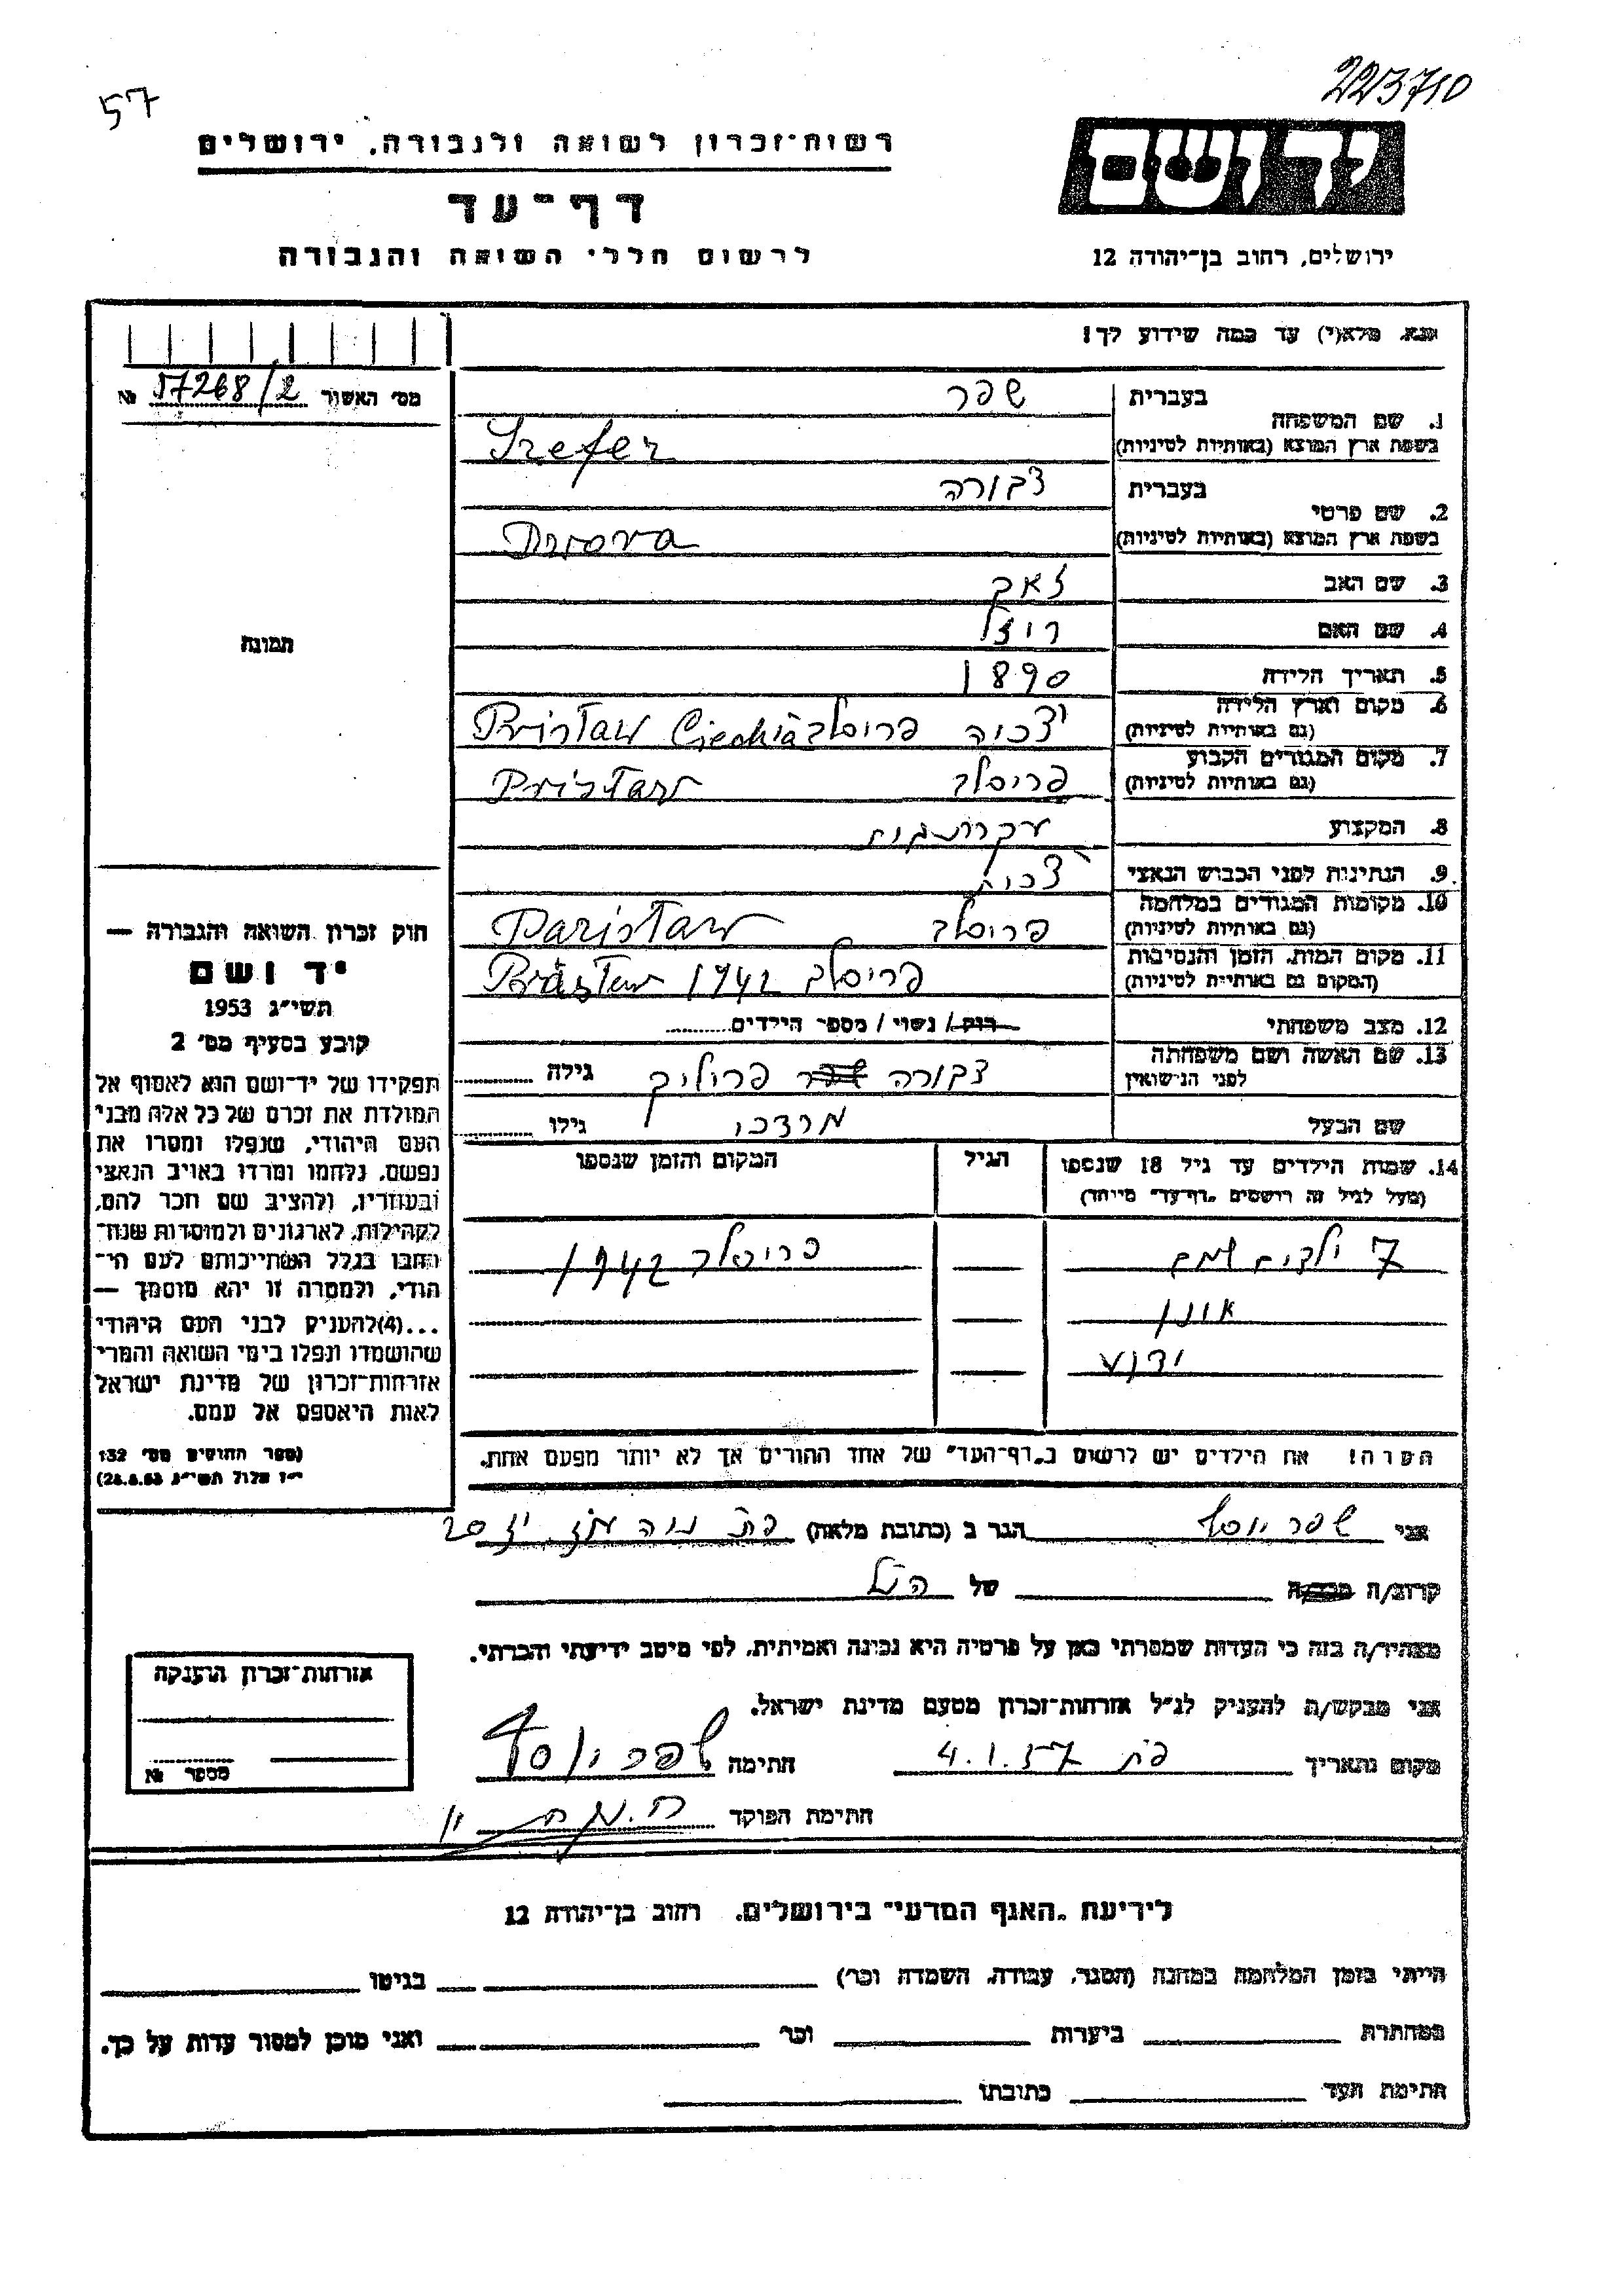 57
223710
רשות-זכרון לשואה ולגבורה, ירושלים
יד ושם
דף-עד
לרשום חללי השואה והגבורה
ירושלים, רחוב בן-יהודה 12
נא, מלא(י) עד כמה שידוע לך!
מס' האשור 57268/2 №
1. שם המשפחה
בעברית שפר
בשפת ארץ המוצא (באותיות לטיניות) Szefer
2. שם פרטי
בעברית דבורה
בשפת ארץ המוצא (באותיות לטיניות) Dwora
3. שם האב זאב
4. שם האם רויזל
5. תאריך הלידה 1890
6. מקום וארץ הלידה (גם באותיות לטיניות) צכיה פריסלב Pristaw Ciechia
7. מקום המגורים הקבוע (גם באותיות לטיניות) פריסלב Pristaw
8. המקצוע עקרת בית
9. הנתינות לפני הכבוש הנאצי צכית
10. מקומות המגורים במלחמה (גם באותיות לטיניות) פריסלב Paristaw
11. מקום המות, הזמן והנסיבות (המקום גם באותיות לטיניות) פריסלב 1942
12. מצב משפחתי רוק / נשוי / מספר הילדים
13. שם האשה ושם משפחתה לפני הנישואין דבורה פרוליך גילה
שם הבעל מרדכי גילו
14. שמות הילדים עד גיל 18 שנספו
(מעל לגיל זה רושמים „דף-עד" מיוחד)
הגיל
המקום והזמן שנספו
7 ילדים שמם פריסלב 1942
אינן
ידוע
הערה! את הילדים יש לרשום ב„דף-העד" של אחד ההורים אך לא יותר מפעם אחת.
תמונה
חוק זכרון השואה והגבורה —
יד ושם
תשי"ג 1953
קובע בסעיף מס' 2
תפקידו של יד-ושם הוא לאסוף אל
המולדת את זכרם של כל אלה מבני
העם היהודי, שנפלו ומסרו את
נפשם, נלחמו ומרדו באויב הנאצי
ובעוזריו, ולהציב שם וזכר להם,
לקהילות, לארגונים ולמוסדות שנח-
רבו בגלל השתייכותם לעם הי-
הודי, ולמטרה זו יהא מוסמך —
...(4)להעניק לבני העם היהודי
שהושמדו ונפלו בימי השואה והמרי
אזרחות-זכרון של מדינת ישראל
לאות היאספם אל עמם.
(ספר החוקים מס' 132
י"ז אלול תשי"ג 28.8.53)
אני שפר יוסף הגר ב (כתובת מלאה) פת נוה עוז
קרוב/ה מכר/ה של הנ"ל
מצהיר/ה בזה כי העדות שמסרתי כאן על פרטיה היא נכונה ואמיתית, לפי מיטב ידיעתי והכרתי.
אני מבקש/ת להעניק לנ"ל אזרחות-זכרון מטעם מדינת ישראל.
מקום ותאריך פת 4.1.57 חתימה שפר יוסף
חתימת הפוקד
אזרחות-זכרון הוענקה
מספר №
לידיעת „האגף המדעי" בירושלים, רחוב בן-יהודה 12
הייתי בזמן המלחמה במחנה (הסגר, עבודה, השמדה וכו') בגיטו
במחתרת ביערות וכו' ואני מוכן למסור עדות על כך.
חתימת העד כתובתו